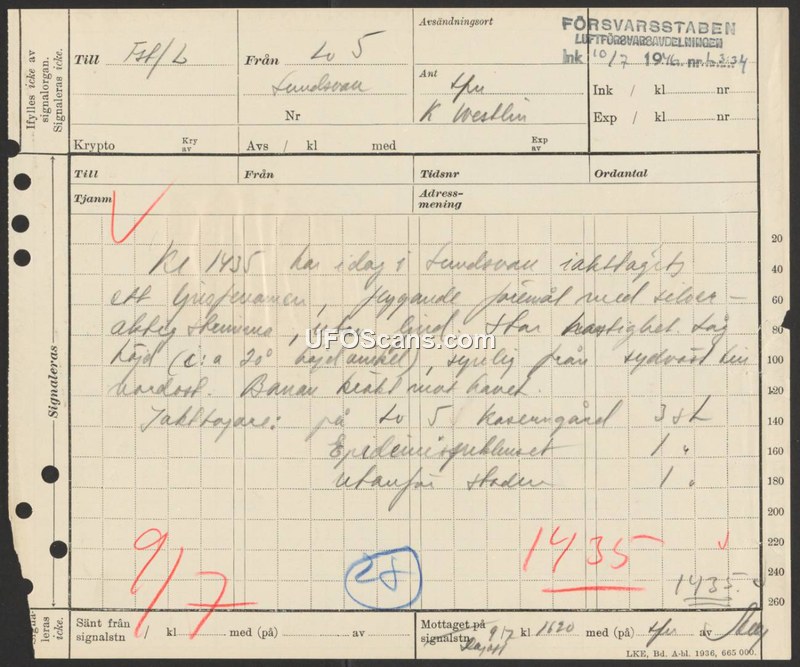 Ifylles icke av
signalorgan.
Signaleras icke.
Till Fst/L
Från Lv 5
Sundsvall
Nr
Avsändningsort
Ant tfn
K Westlin
FÖRSVARSSTABEN
LUFTFÖRSVARSAVDELNINGEN
Ink 10/7 1946 nr
Ink / kl nr
Exp / kl nr
Krypto Kry av
Avs / kl med Exp av
Till Från Tidsnr Ordantal
Tjanm Adress-
mening
Signaleras
20
Kl 1435 har idag i Sundsvall iakttagits
40
ett ljusfenomen, flygande föremål med silver-
60
stor hastighet. Låg
80
höjd (c:a 20° höjdvinkel), synlig från sydväst till
100
nordost. Banan bröts mot havet.
120
Iakttagare: på Lv 5 kaserngård 3 st
140
Epidemisjukhuset 1 "
160
utanför staden 1 "
180
UFOScans.com
200
220
240
260
9/7
28
1435
1435
Signa-
leras
icke.
Sänt från
signalstn / kl med (på) av
Mottaget på
signalstn 9/7 kl 1620 med (på) tfn
LKE, Bd. A-bl. 1936, 665 000.